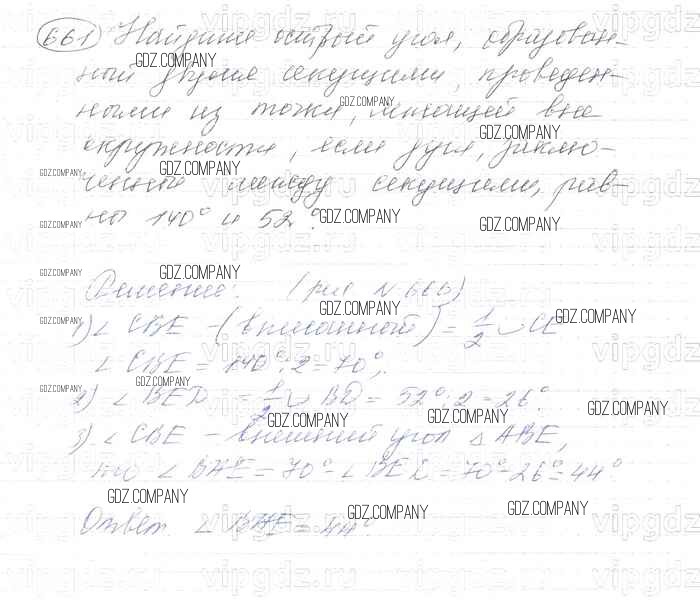 661 Найдите острый угол, образован-
ный двумя секущими, проведен-
ными из точки, лежащей вне
окружности, если дуги, заклю-
ченные между секущими, рав-
ны 140° и 52°?
Решение: (рис N 666)
1) ∠ CBE - (вписанный) = 1/2 ◡ CE
∠ CBE = 140° : 2 = 70°;
2) ∠ BED = 1/2 ◡ BD = 52° : 2 = 26°.
3) ∠ CBE - внешний угол △ ABE,
то ∠ BAE = 70° - ∠ BED = 70° - 26° = 44°
Ответ ∠ BAE = 44°.
GDZ.COMPANY
vipgdz.ru